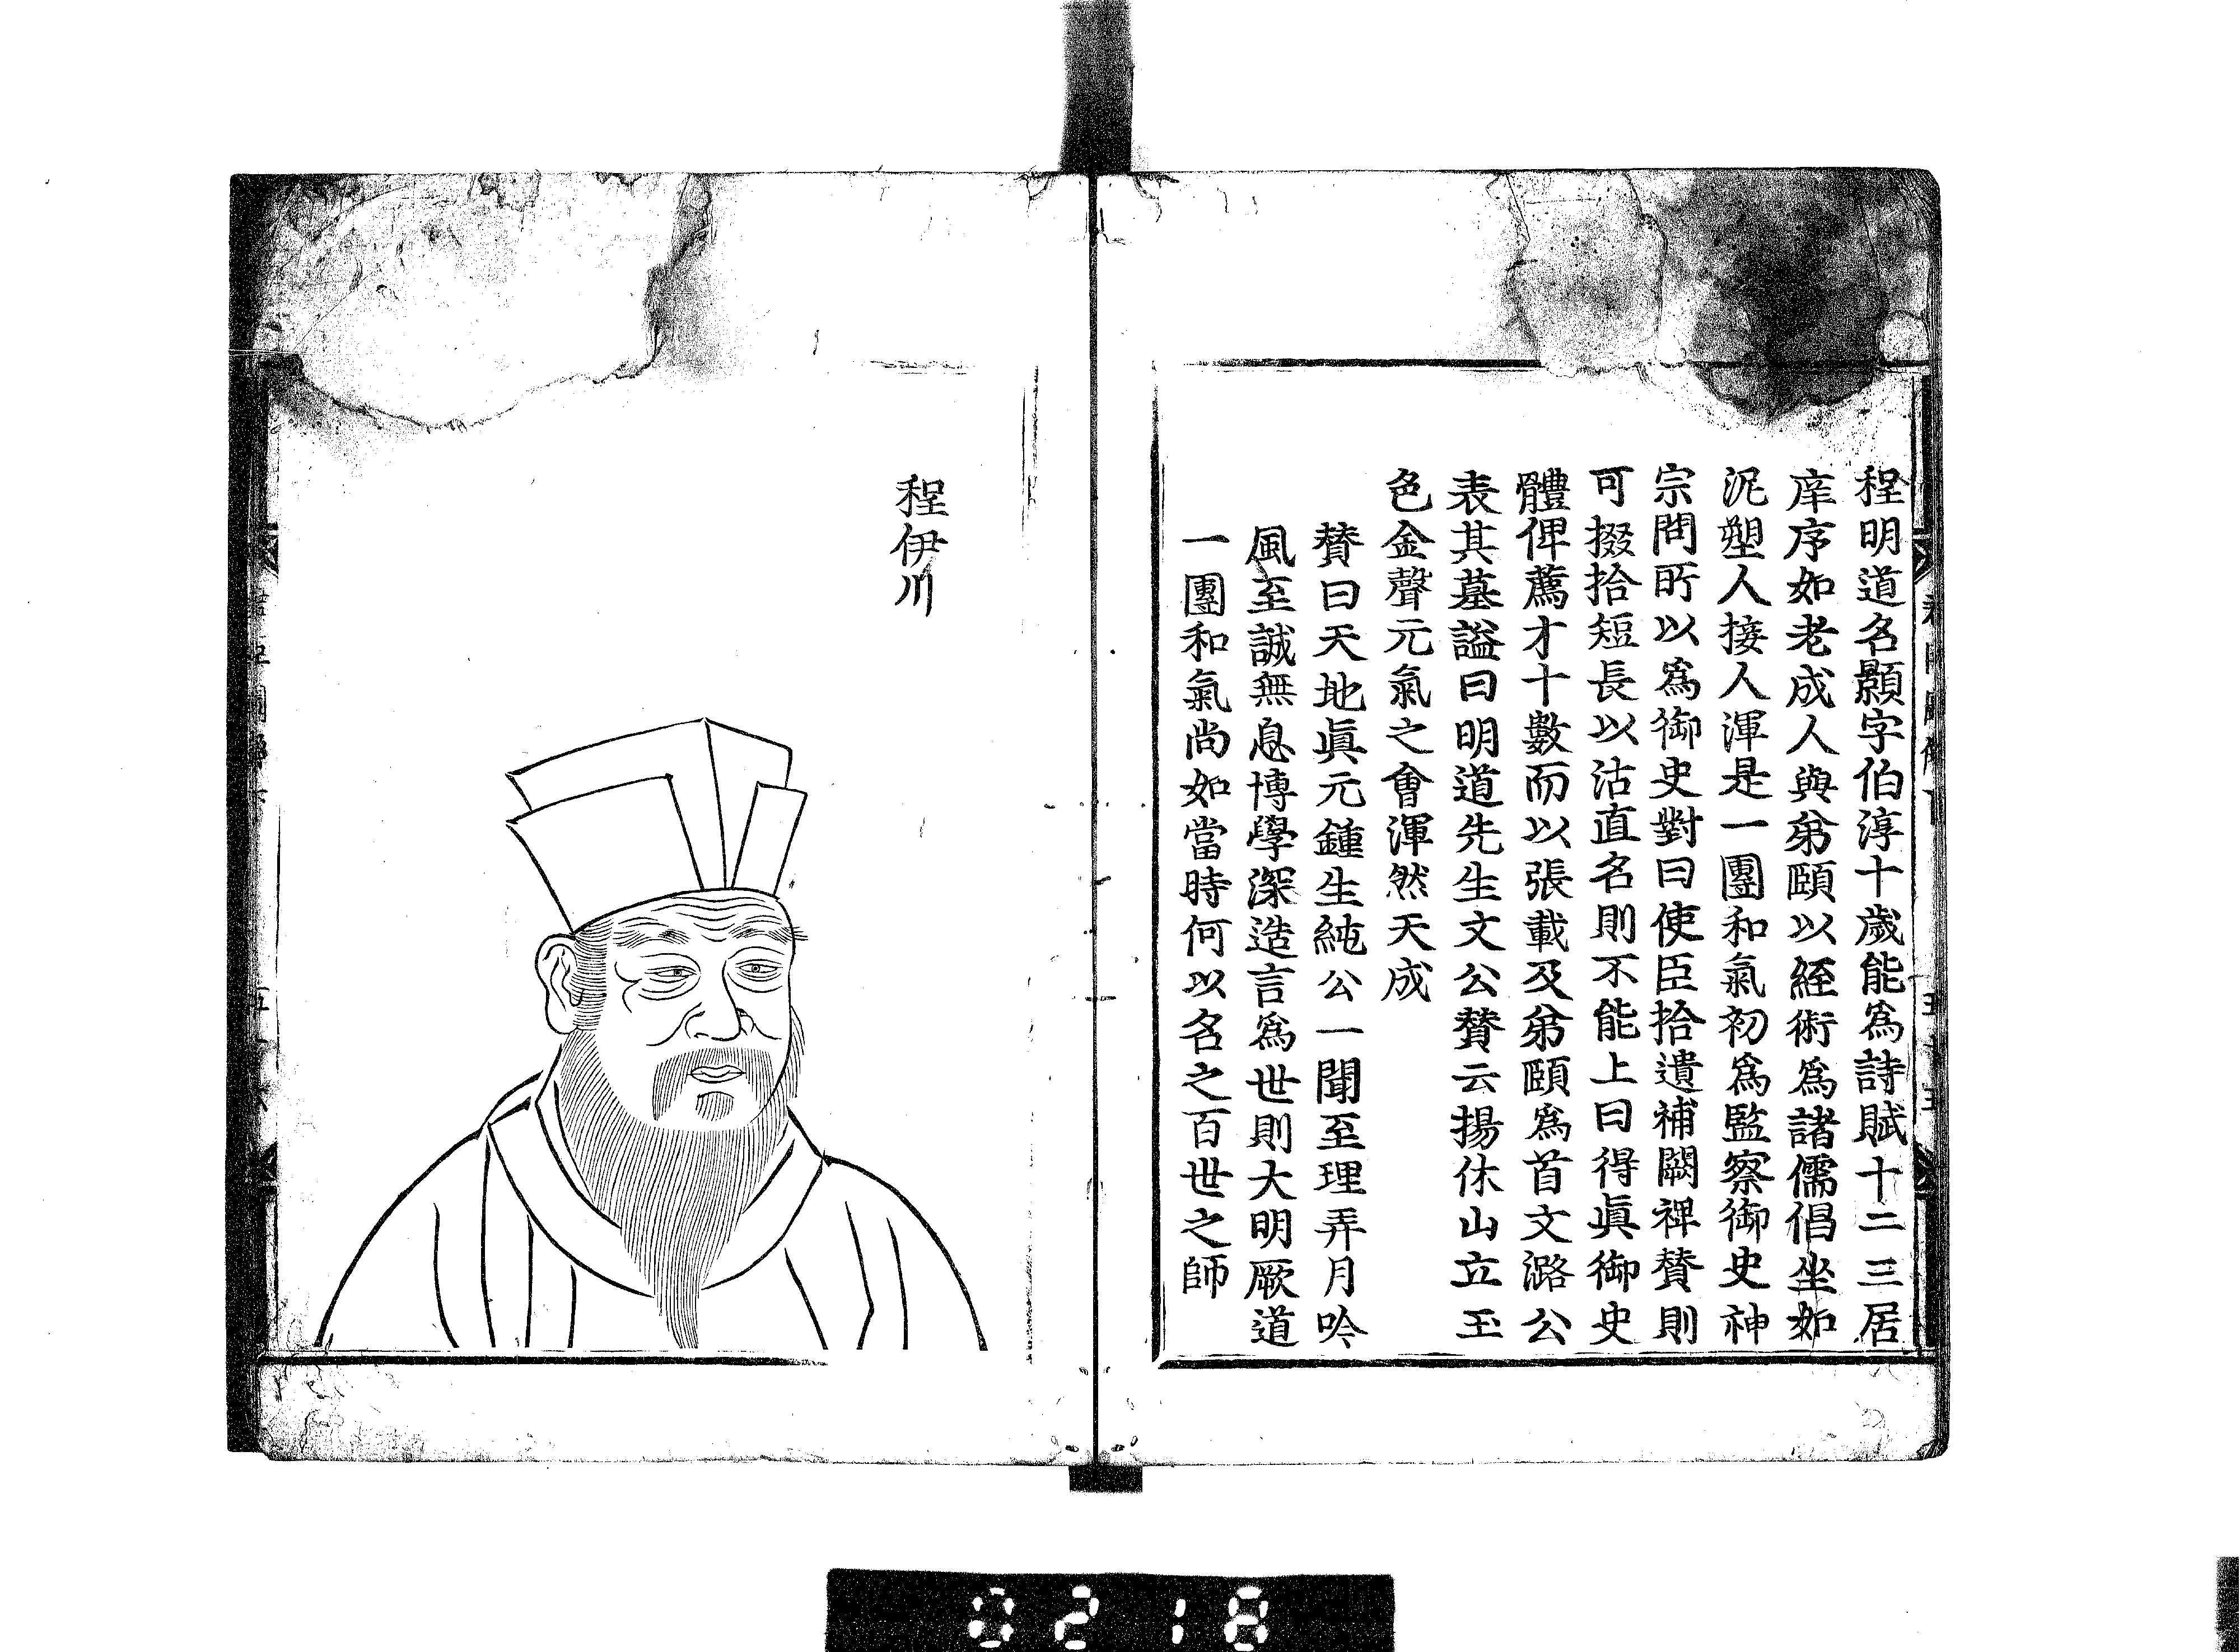 程明道名顥字伯淳十歲能爲詩賦十二三居
庠序如老成人與弟頤以經術爲諸儒倡坐如
泥塑人接人渾是一團和氣初爲監察御史神
宗問所以爲御史對曰使臣拾遺補闕裨賛則
可掇拾短長以沽直名則不能上曰得眞御史
體俾薦才十數而以張載及弟頤爲首文潞公
表其墓謚曰明道先生文公賛云揚休山立玉
色金聲元氣之會渾然天成
賛曰天地眞元鍾生純公一聞至理弄月吟
風至誠無息博學深造言爲世則大明厥道
一團和氣尚如當時何以名之百世之師
程伊川
0218